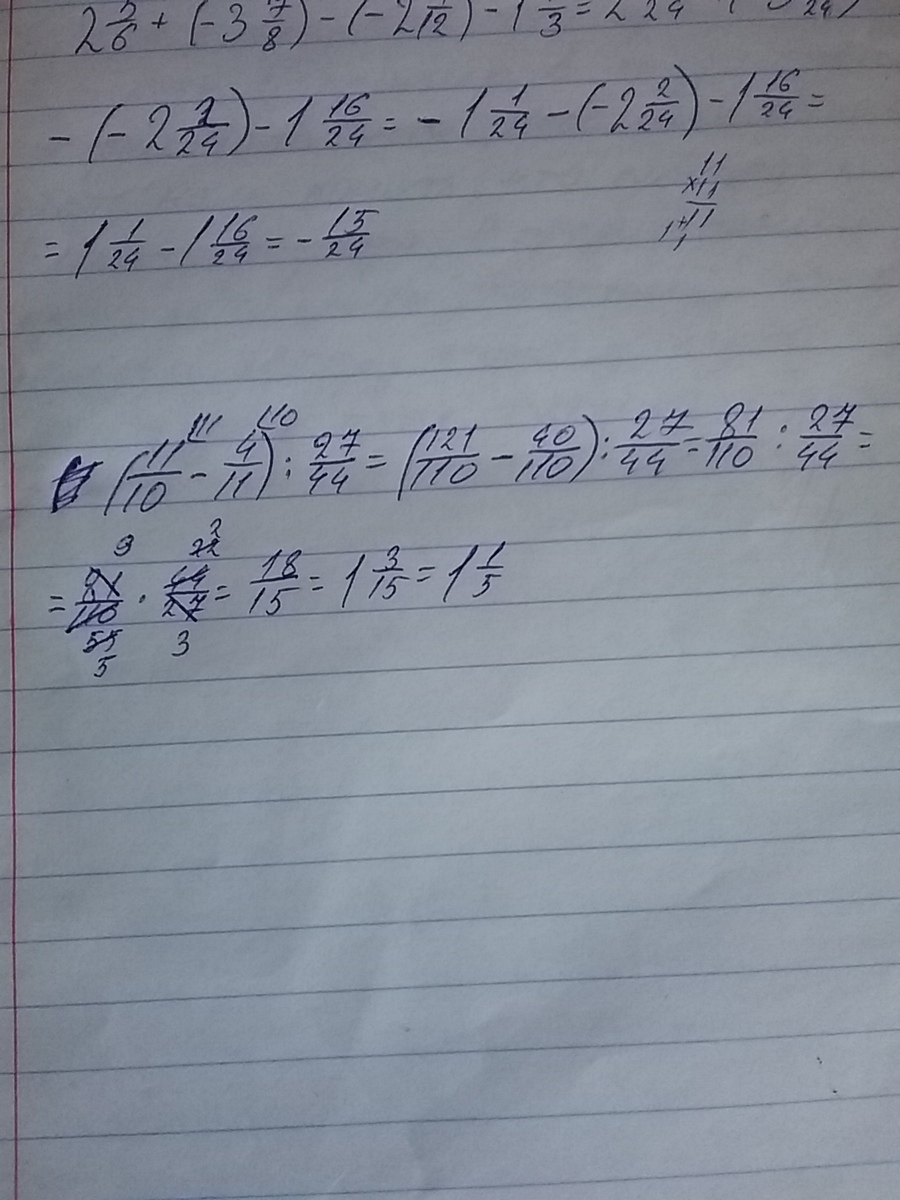 2 5/6 + (-3 7/8) - (-2 1/12) - 1 2/3 = 2 /24
- (-2 2/24) - 1 16/24 = - 1 1/24 - (-2 2/24) - 1 16/24 =
11
×11
11
+
11
= 1 1/24 - 1 16/24 = - 15/24
11 10
(11/10 - 4/11) : 27/44 = (121/110 - 40/110) : 27/44 = 81/110 : 27/44 =
9 2
22
= 81/110 · 44/27 = 18/15 = 1 3/15 = 1 1/5
55 3
5